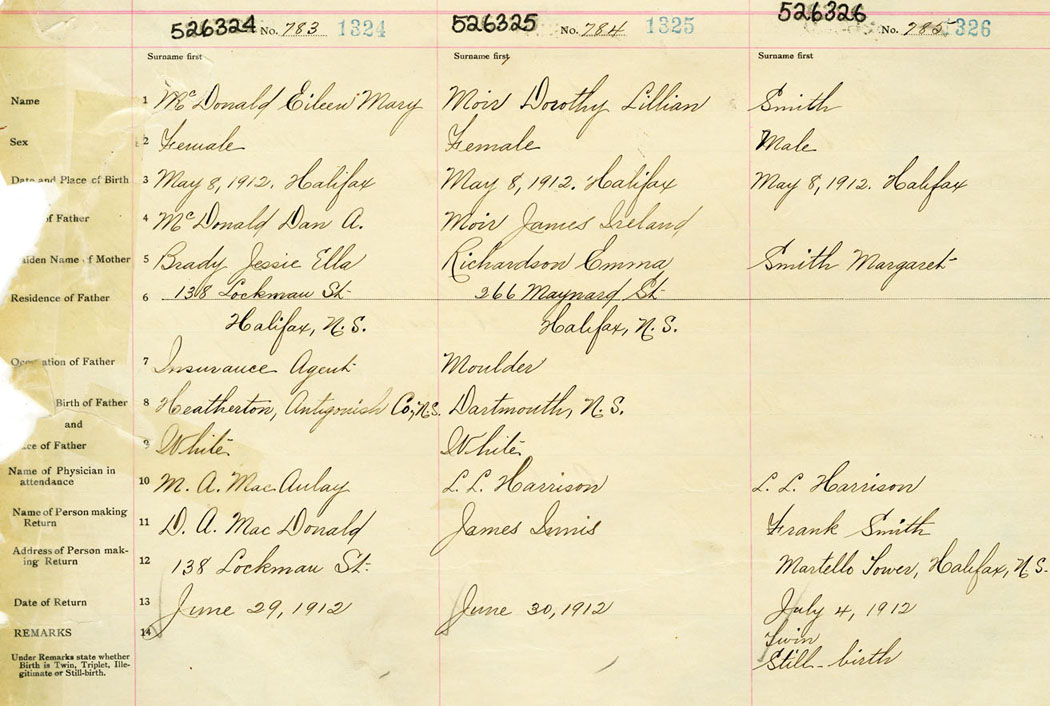 526324 No. 783 1324 526325 No. 784 1325 526326 No. 785 326
Surname first Surname first Surname first
Name 1 McDonald Eileen Mary Moir Dorothy Lillian Smith
Sex 2 Female Female Male
Date and Place of Birth 3 May 8, 1912. Halifax May 8, 1912. Halifax May 8, 1912. Halifax
of Father 4 McDonald Dan A. Moir James Ireland
aiden Name of Mother 5 Brady Jessie Ella Richardson Emma Smith Margaret
Residence of Father 6 138 Lockman St. 266 Maynard St
Halifax, N.S. Halifax, N.S.
Occupation of Father 7 Insurance Agent Moulder
Birth of Father 8 Heatherton, Antigonish Co, N.S. Dartmouth, N.S.
and
ce of Father 9 White White
Name of Physician in
attendance 10 M. A. MacAulay L. L. Harrison L. L. Harrison
Name of Person making
Return 11 D. A. MacDonald James Innis Frank Smith
Address of Person mak-
ing Return 12 138 Lockman St. Martello Tower, Halifax, N.S.
Date of Return 13 June 29, 1912 June 30, 1912 July 4, 1912
REMARKS 14 Twin
Under Remarks state whether Still-birth
Birth is Twin, Triplet, Ille-
gitimate or Still-birth.